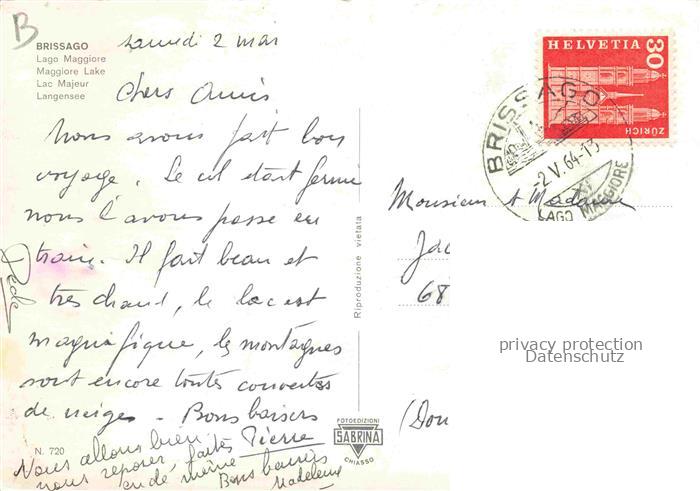 B
BRISSAGO
Lago Maggiore
Maggiore Lake
Lac Majeur
Langensee
samedi 2 mai
Chers Amis
Nous avons fait bon
voyage. Le col étant fermé
nous l'avons passé en
train. Il fait beau et
très chaud, le lac est
magnifique, les montagnes
sont encore toutes couvertes
de neiges - Bons baisers
Pierre
Nous allons bien
nous reposer, faites
en de même
Bons baisers
Madeleine
N. 720
Riproduzione vietata
FOTOEDIZIONI
SABRINA
CHIASSO
HELVETIA 30
ZÜRICH
BRISSAGO
-2.V.64-13
LAGO MAGGIORE
Monsieur et Madame
Jac
68
(Dou
privacy protection
Datenschutz